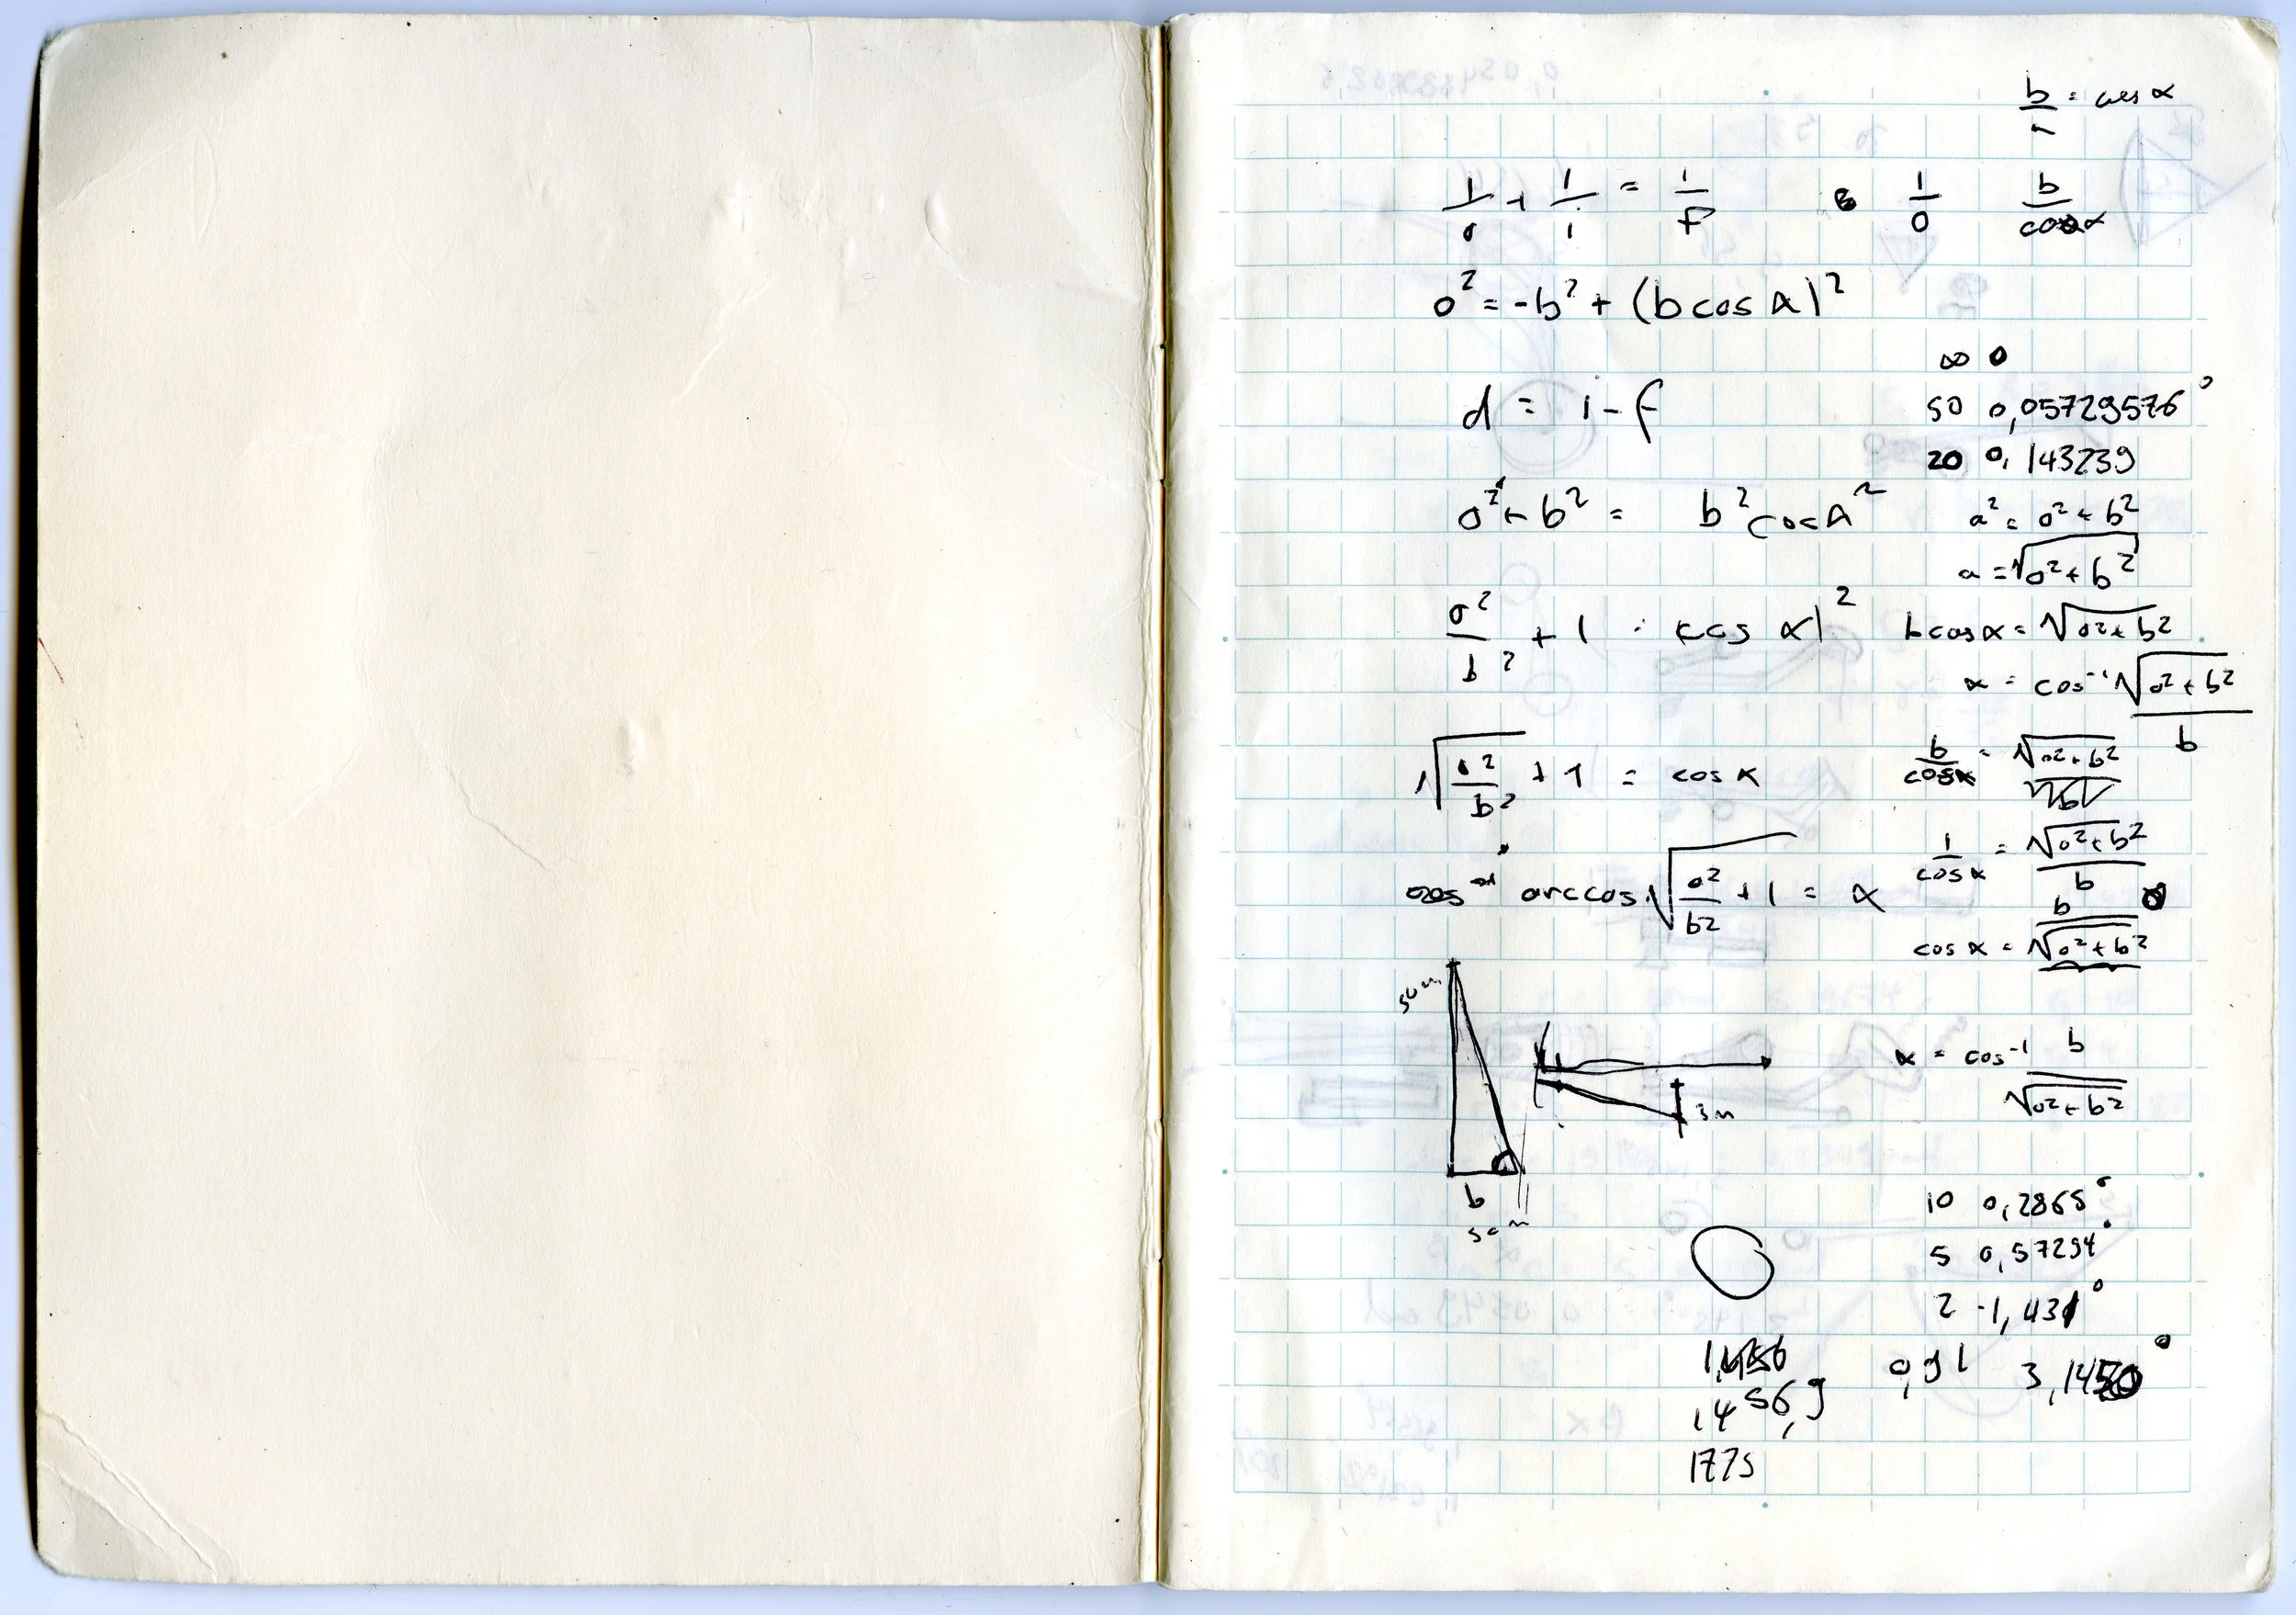 b/ = cos α
1/o + 1/i = 1/f 1/o b/cos α
o² = -b² + (b cos α)²
∞ 0
d = i - f
50 0,05729576°
20 0,143239
o² + b² = b² cos α²
a² = o² + b²
a = √(o² + b²)
o²/b² + 1 = (cos α)²
b cos α = √(o² + b²)
α = cos⁻¹ √(o² + b²)/b
√(o²/b²) + 1 = cos α
b/cos α = √(o² + b²)
1/cos α = √(o² + b²)/b
arccos √(o²/b² + 1) = α
cos α = b/√(o² + b²)
50m
α = cos⁻¹ b/√(o² + b²)
3m
b
5cm
10 0,2865°
5 0,57294°
2 1,431°
0,91 3,1450°
1456,9
1775